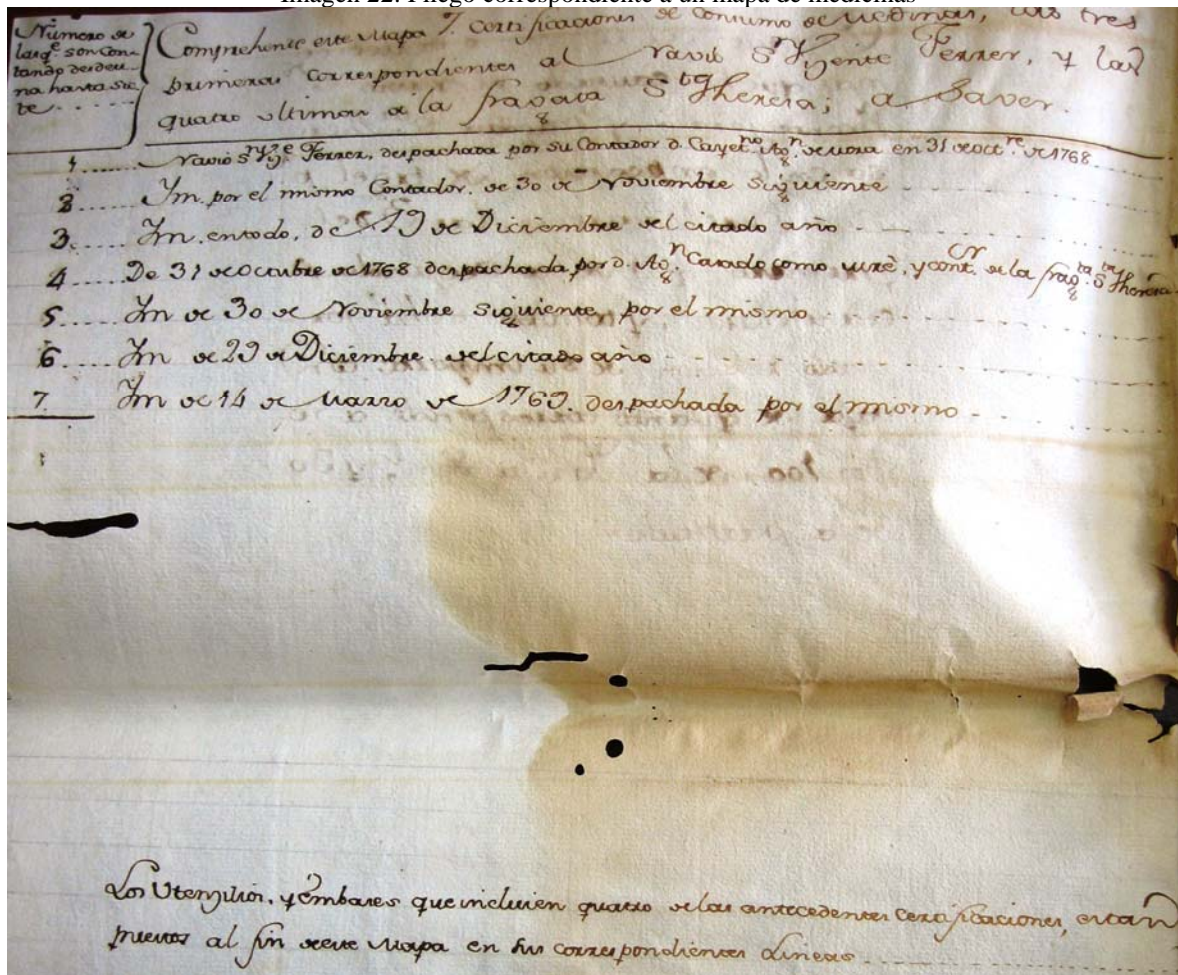 Imagen 22. Pliego correspondiente a un mapa de medicinas
Número de
las qᵉ son con-
tando desde u-
na hasta sie-
te
Comprehende este Mapa 7. Certificaciones de Consumo de Medicinas, las tres
primeras correspondientes al Navio Sⁿ Vizente Ferrer, y las
quatro ultimas a la fragata Sᵗᵃ Thereza; a Saver.
1 Navio Sⁿ Vizᵉ Ferrer, despachada por su Contador d. Cayetⁿᵒ en 31 de octʳᵉ de 1768
2 Ym. por el mismo Contador. de 30 de Noviembre siguiente
3. Ym. entodo, de 19 de Diciembre del citado año
4 De 31 de Octubre de 1768 despachada por d. Agⁿ Casado como mrẽ, y contᵒʳ de la fragᵗᵃ Sᵗᵃ Thereza
5 Ym de 30 de Noviembre siguiente, por el mismo
6 Ym de 29 de Diciembre del citado año
7 Ym de 14 de Marzo de 1769. despachada por el mismo
Los Utenzilios, y embases que incluien quatro de las antecedentes Certificaciones, estan
puestos al fin de este Mapa en sus correspondientes Lineas